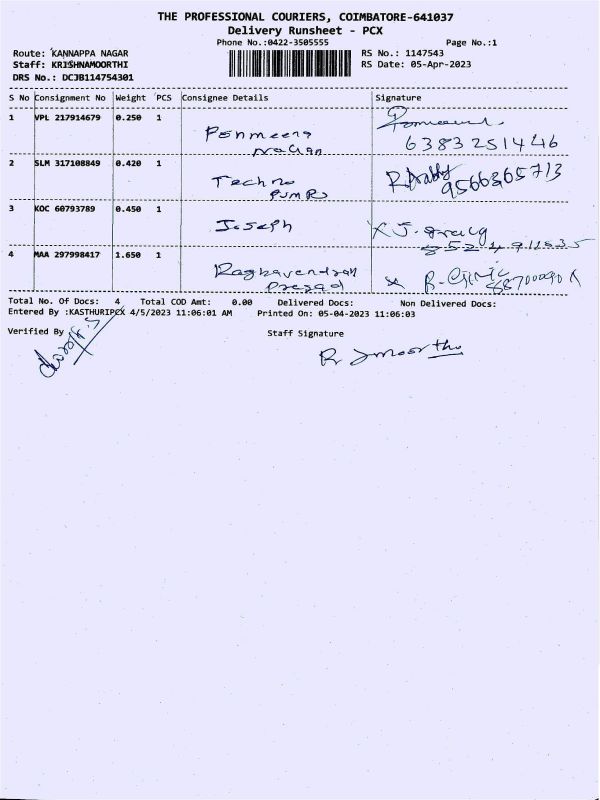 THE PROFESSIONAL COURIERS, COIMBATORE-641037
Delivery Runsheet - PCX
Phone No.:0422-3505555 Page No.:1
Route: KANNAPPA NAGAR RS No.: 1147543
Staff: KRISHNAMOORTHI RS Date: 05-Apr-2023
DRS No.: DCJB114754301
S No Consignment No Weight PCS Consignee Details Signature
1 VPL 217914679 0.250 1
Ponmeena 6383251446
2 SLM 317108849 0.420 1
Techno 9566365713
Pumps
3 KOC 60793789 0.450 1
Joseph
4 MAA 297998417 1.650 1
Raghavendran
Prasad
Total No. Of Docs: 4 Total COD Amt: 0.00 Delivered Docs: Non Delivered Docs:
Entered By :KASTHURIPCX 4/5/2023 11:06:01 AM Printed On: 05-04-2023 11:06:03
Verified By Staff Signature